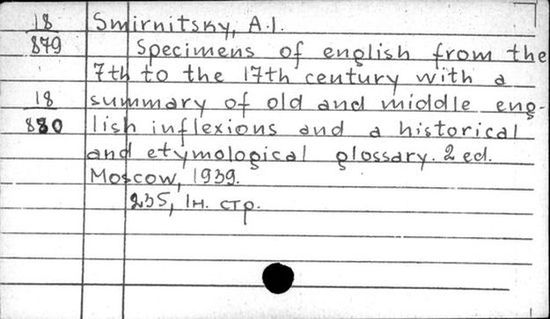 18 Smirnitsky, A.I.
879 Specimens of english from the
7th to the 17th century with a
18 summary of old and middle eng-
880 lish inflexions and a historical
and etymological glossary. 2 ed.
Moscow, 1939.
235, 1н. стр.